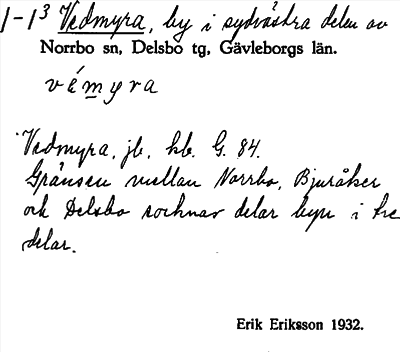 1-1³ Vedmyra, by i sydvästra delen av
Norrbo sn, Delsbo tg, Gävleborgs län.
vémyra
Vedmyra, jb, kb. G. 84.
Gränsen mellan Norrbo, Bjuråker
och Delsbo socknar delar byn i tre
delar.
Erik Eriksson 1932.